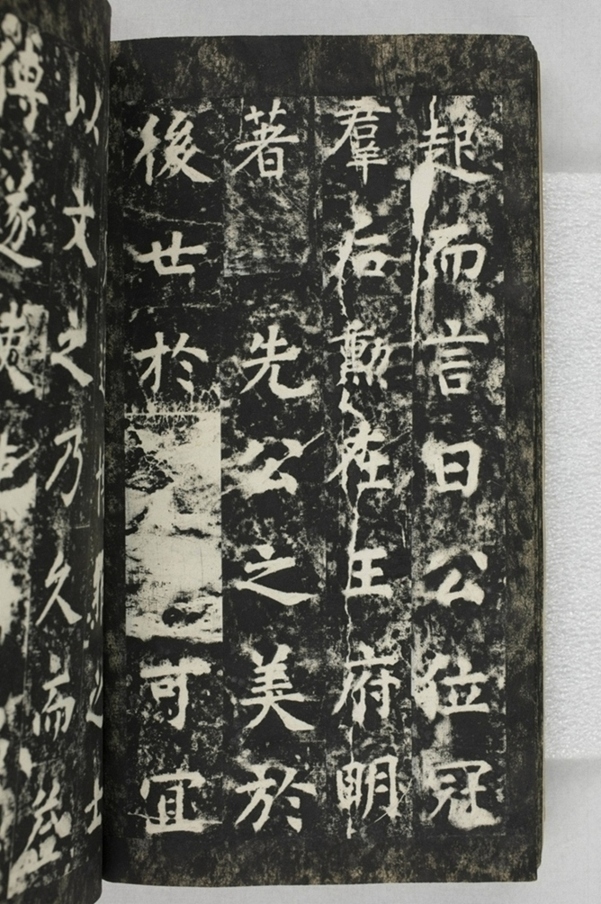 起而言曰公位冠
羣后勲在王府明
著 先公之美於
後世於 可宜
之士
以文之乃久而益
傳遂